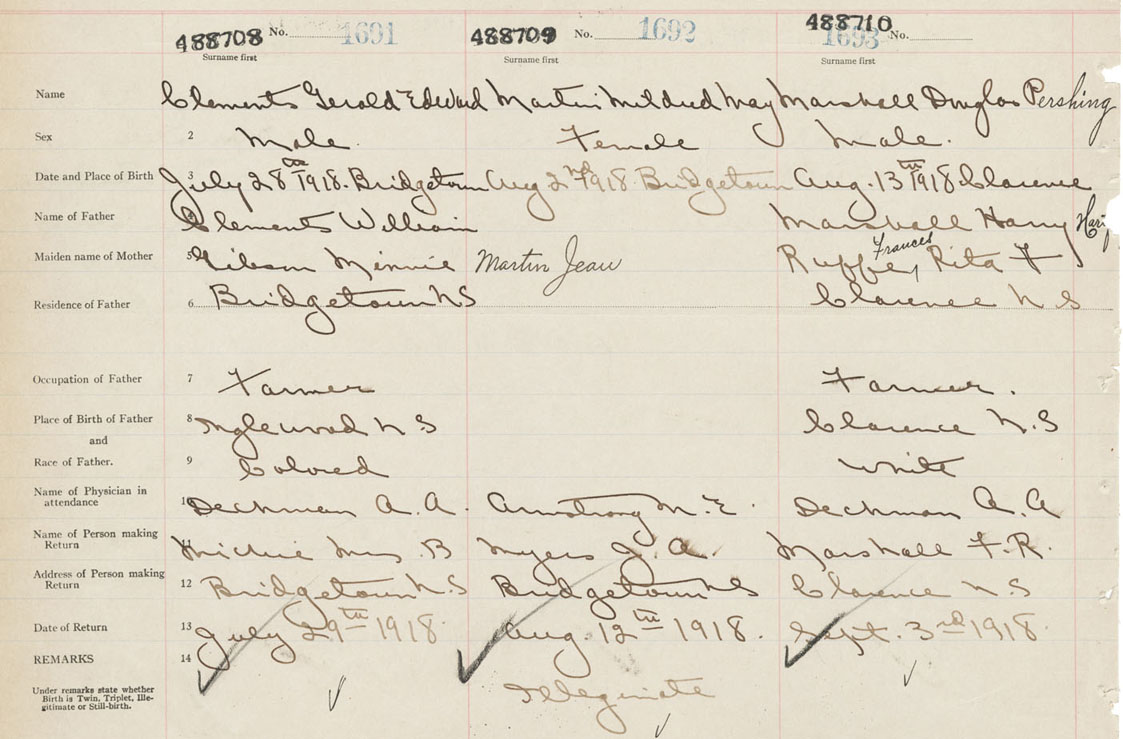 488708 No. 1691 488709 No. 1692 488710 1693 No.
Surname first Surname first Surname first
Name Clements Gerald Edward Martin Mildred May Marshall Douglas Pershing
Sex 2 Male. Female Male.
Date and Place of Birth 3 July 28th 1918. Bridgetown Aug 2nd 1918 Bridgetown Aug. 13th 1918 Clarence
Name of Father Clements William Marshall Harry
Frances
Maiden name of Mother 5 Gibson Minnie Martin Jean Ruffee, Rita F
Residence of Father 6 Bridgetown N S Clarence N S
Occupation of Father 7 Farmer Farmer.
Place of Birth of Father 8 Inglewood N S Clarence N.S
and
Race of Father. 9 Colored White
Name of Physician in
attendance 10 Deckman A. A. Armstrong M. E. Deckman A. A
Name of Person making
Return 11 Michie Mrs. B Myers J. A. Marshall F. R.
Address of Person making
Return 12 Bridgetown N.S Bridgetown N S Clarence N.S
Date of Return 13 July 29th 1918. Aug. 12th 1918. Sept. 3rd 1918.
REMARKS 14
Under remarks state whether
Birth is Twin, Triplet, Ille-
gitimate or Still-birth.
Illeginate